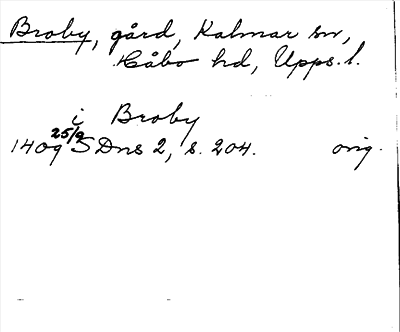 Broby, gård, Kalmar sn,
Håbo hd, Upps. l.
i Broby
1409 25/9 SDns 2, s. 204. orig.